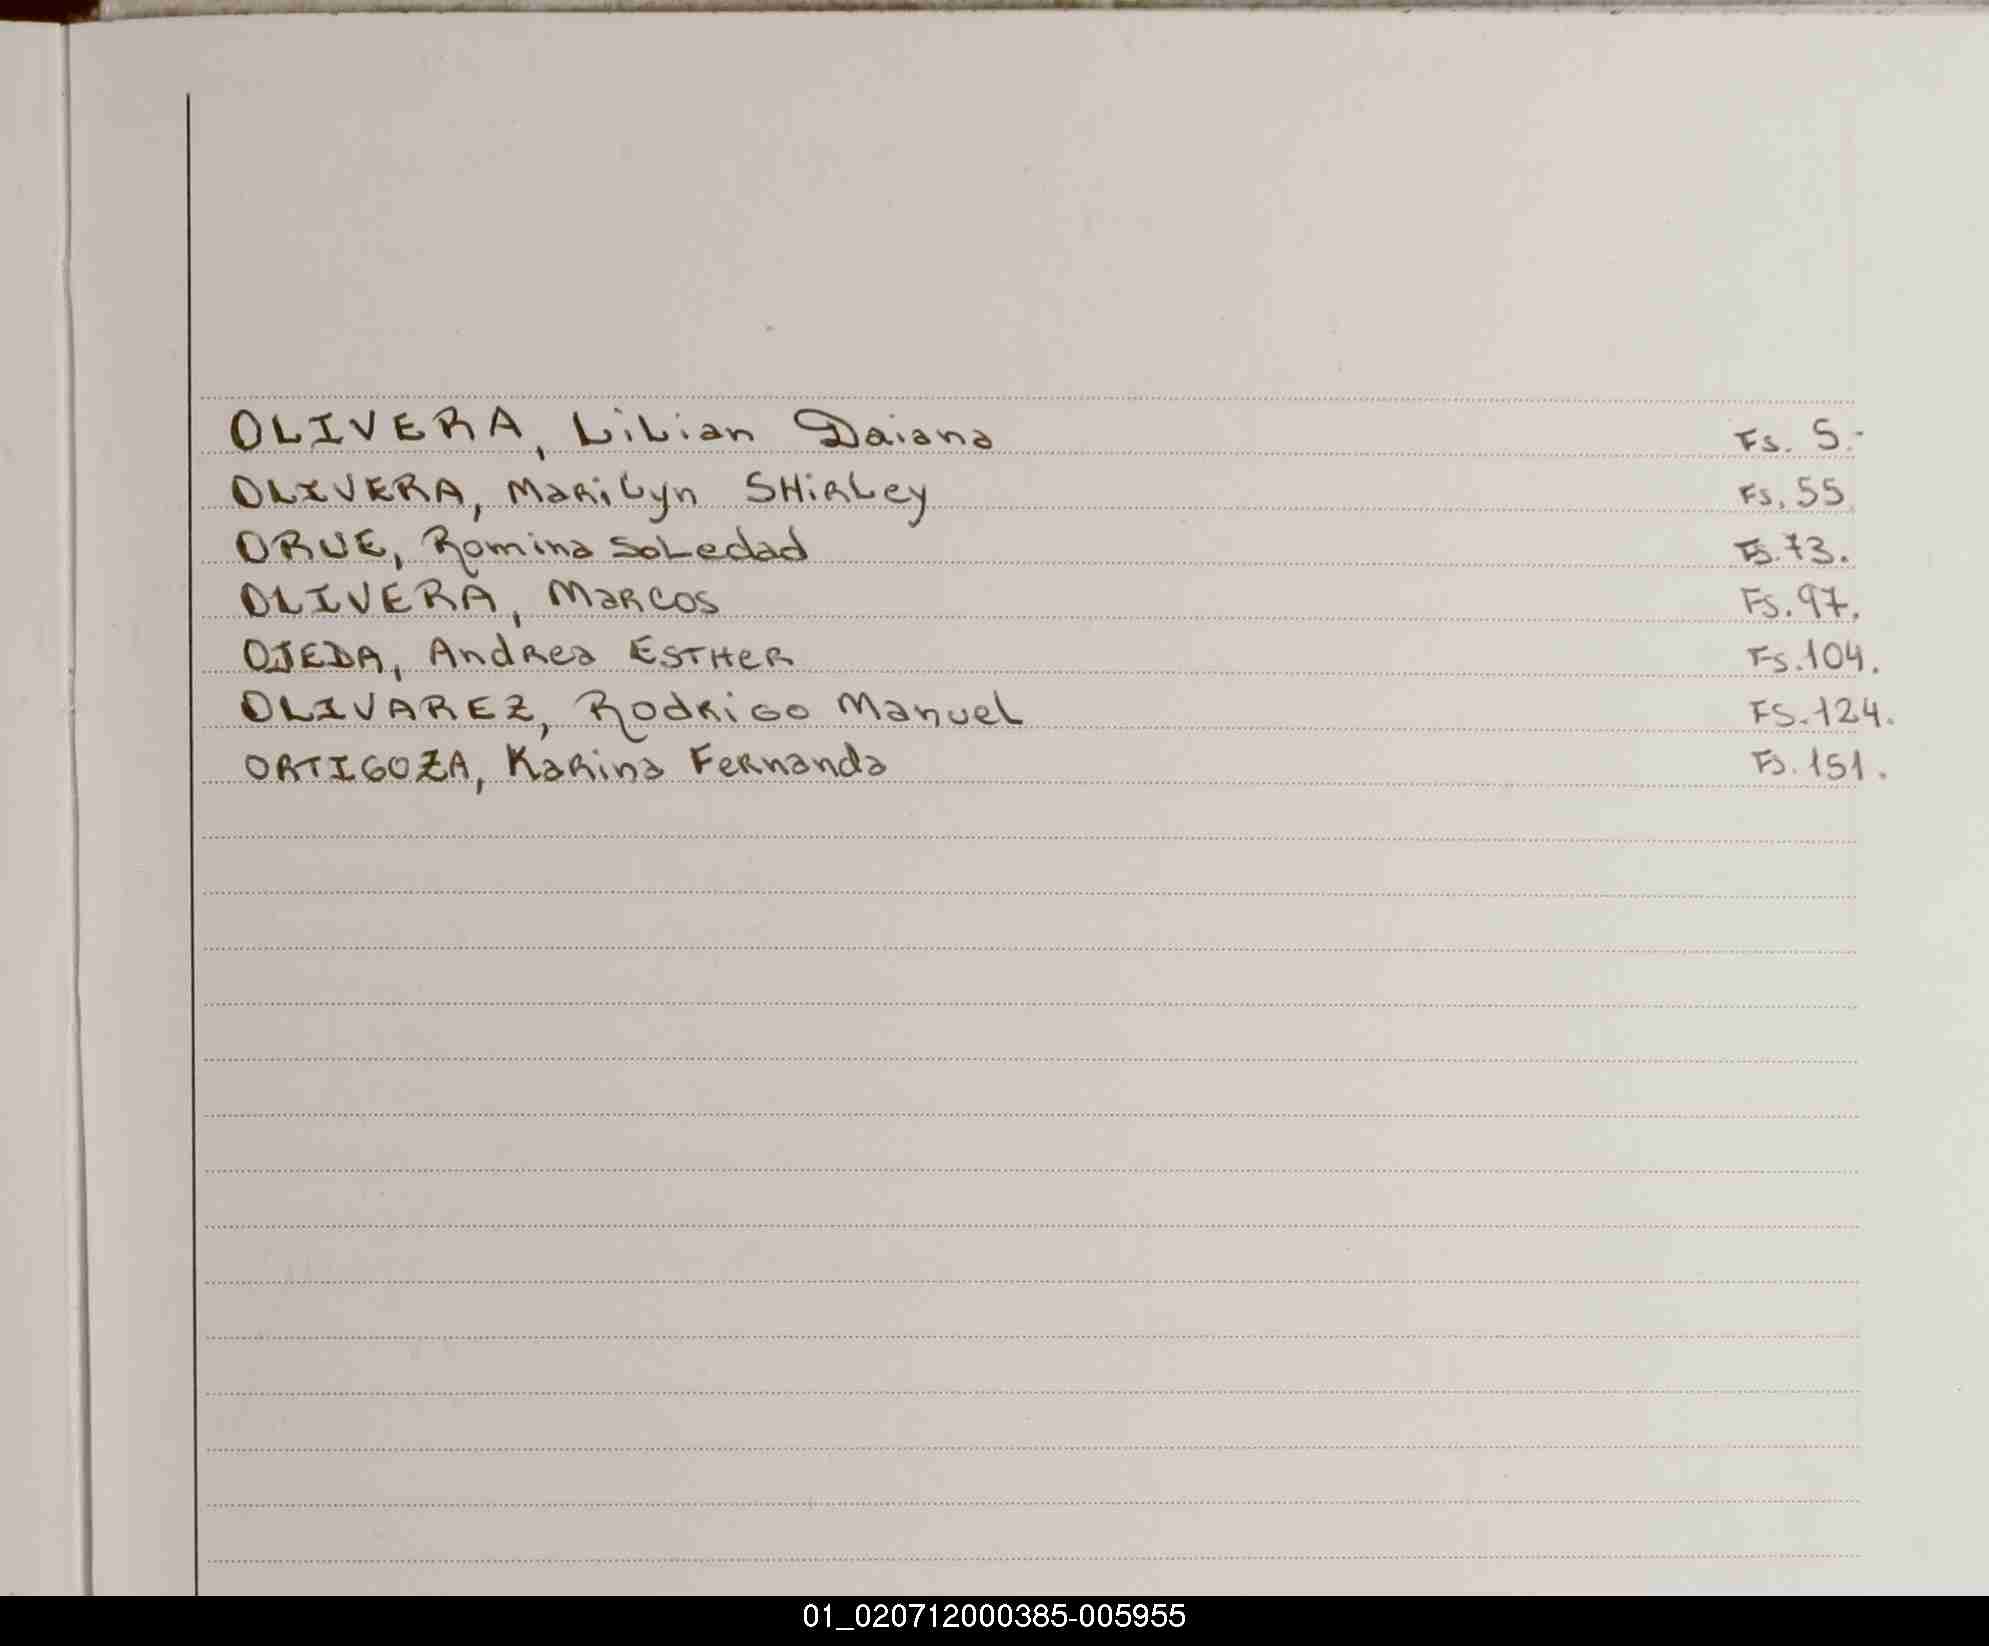 OLIVERA, Lilian Daiana Fs. 5.-
OLIVERA, Marilyn SHirley Fs. 55
ORUE, Romina Soledad Fs. 73.
OLIVERA, Marcos Fs. 97.
OJEDA, Andrea ESTHER Fs. 104.
OLIVAREZ, Rodrigo Manuel FS. 124.
ORTIGOZA, Karina Fernanda Fs. 151.
01_020712000385-005955